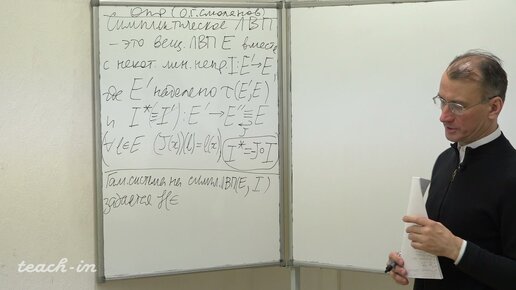 Опр (О.Г. Смолянов)
Симплектическое ЛВП
- это вещ. ЛВП E вместе
с некот. лин. непр I: E' → E,
где E' наделено τ(E', E)
и I* (≡ I'): E' → E'' ≡ E
J
(∀ l ∈ E' (J(x))(l) = l(x)) I* = J∘I
Гам. система на симпл. ЛВП (E, I)
задается ℋ ∈
teach-in